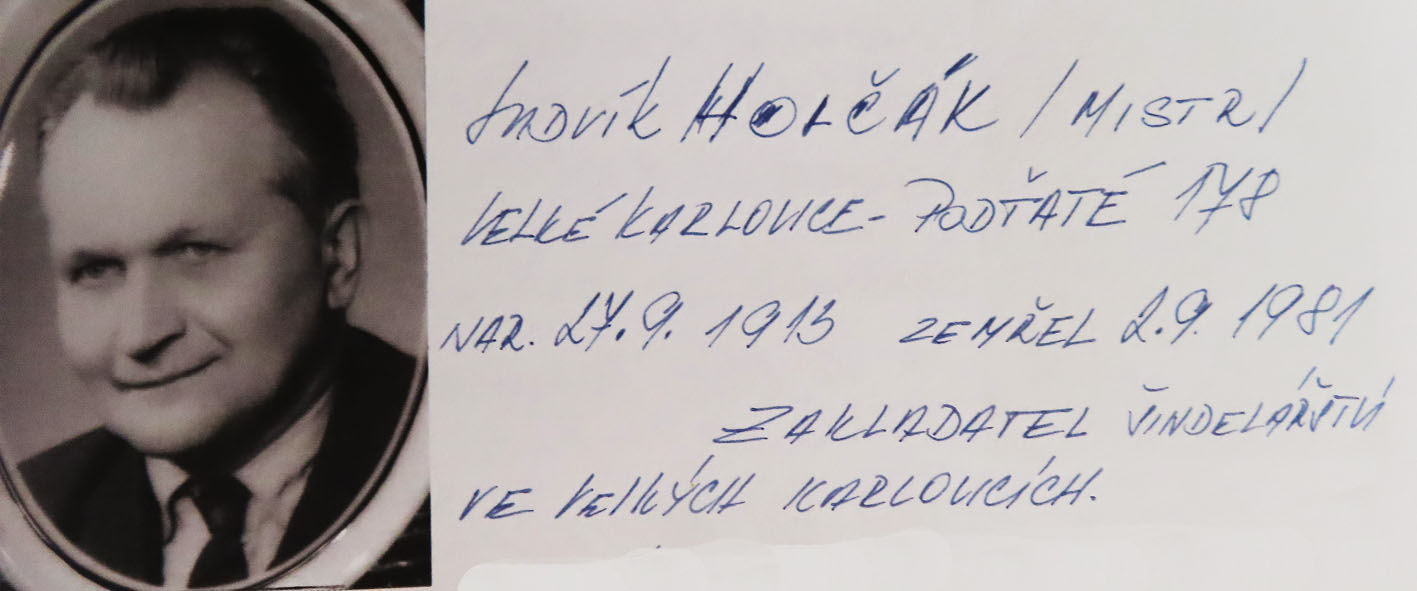 LUDVÍK HOLČÁK / MISTR /
VELKÉ KARLOVICE - PODŤATÉ 178
NAR. 27.9. 1913 ZEMŘEL 2.9. 1981
ZAKLADATEL ŠINDELÁŘSTVÍ
VE VELKÝCH KARLOVICÍCH.